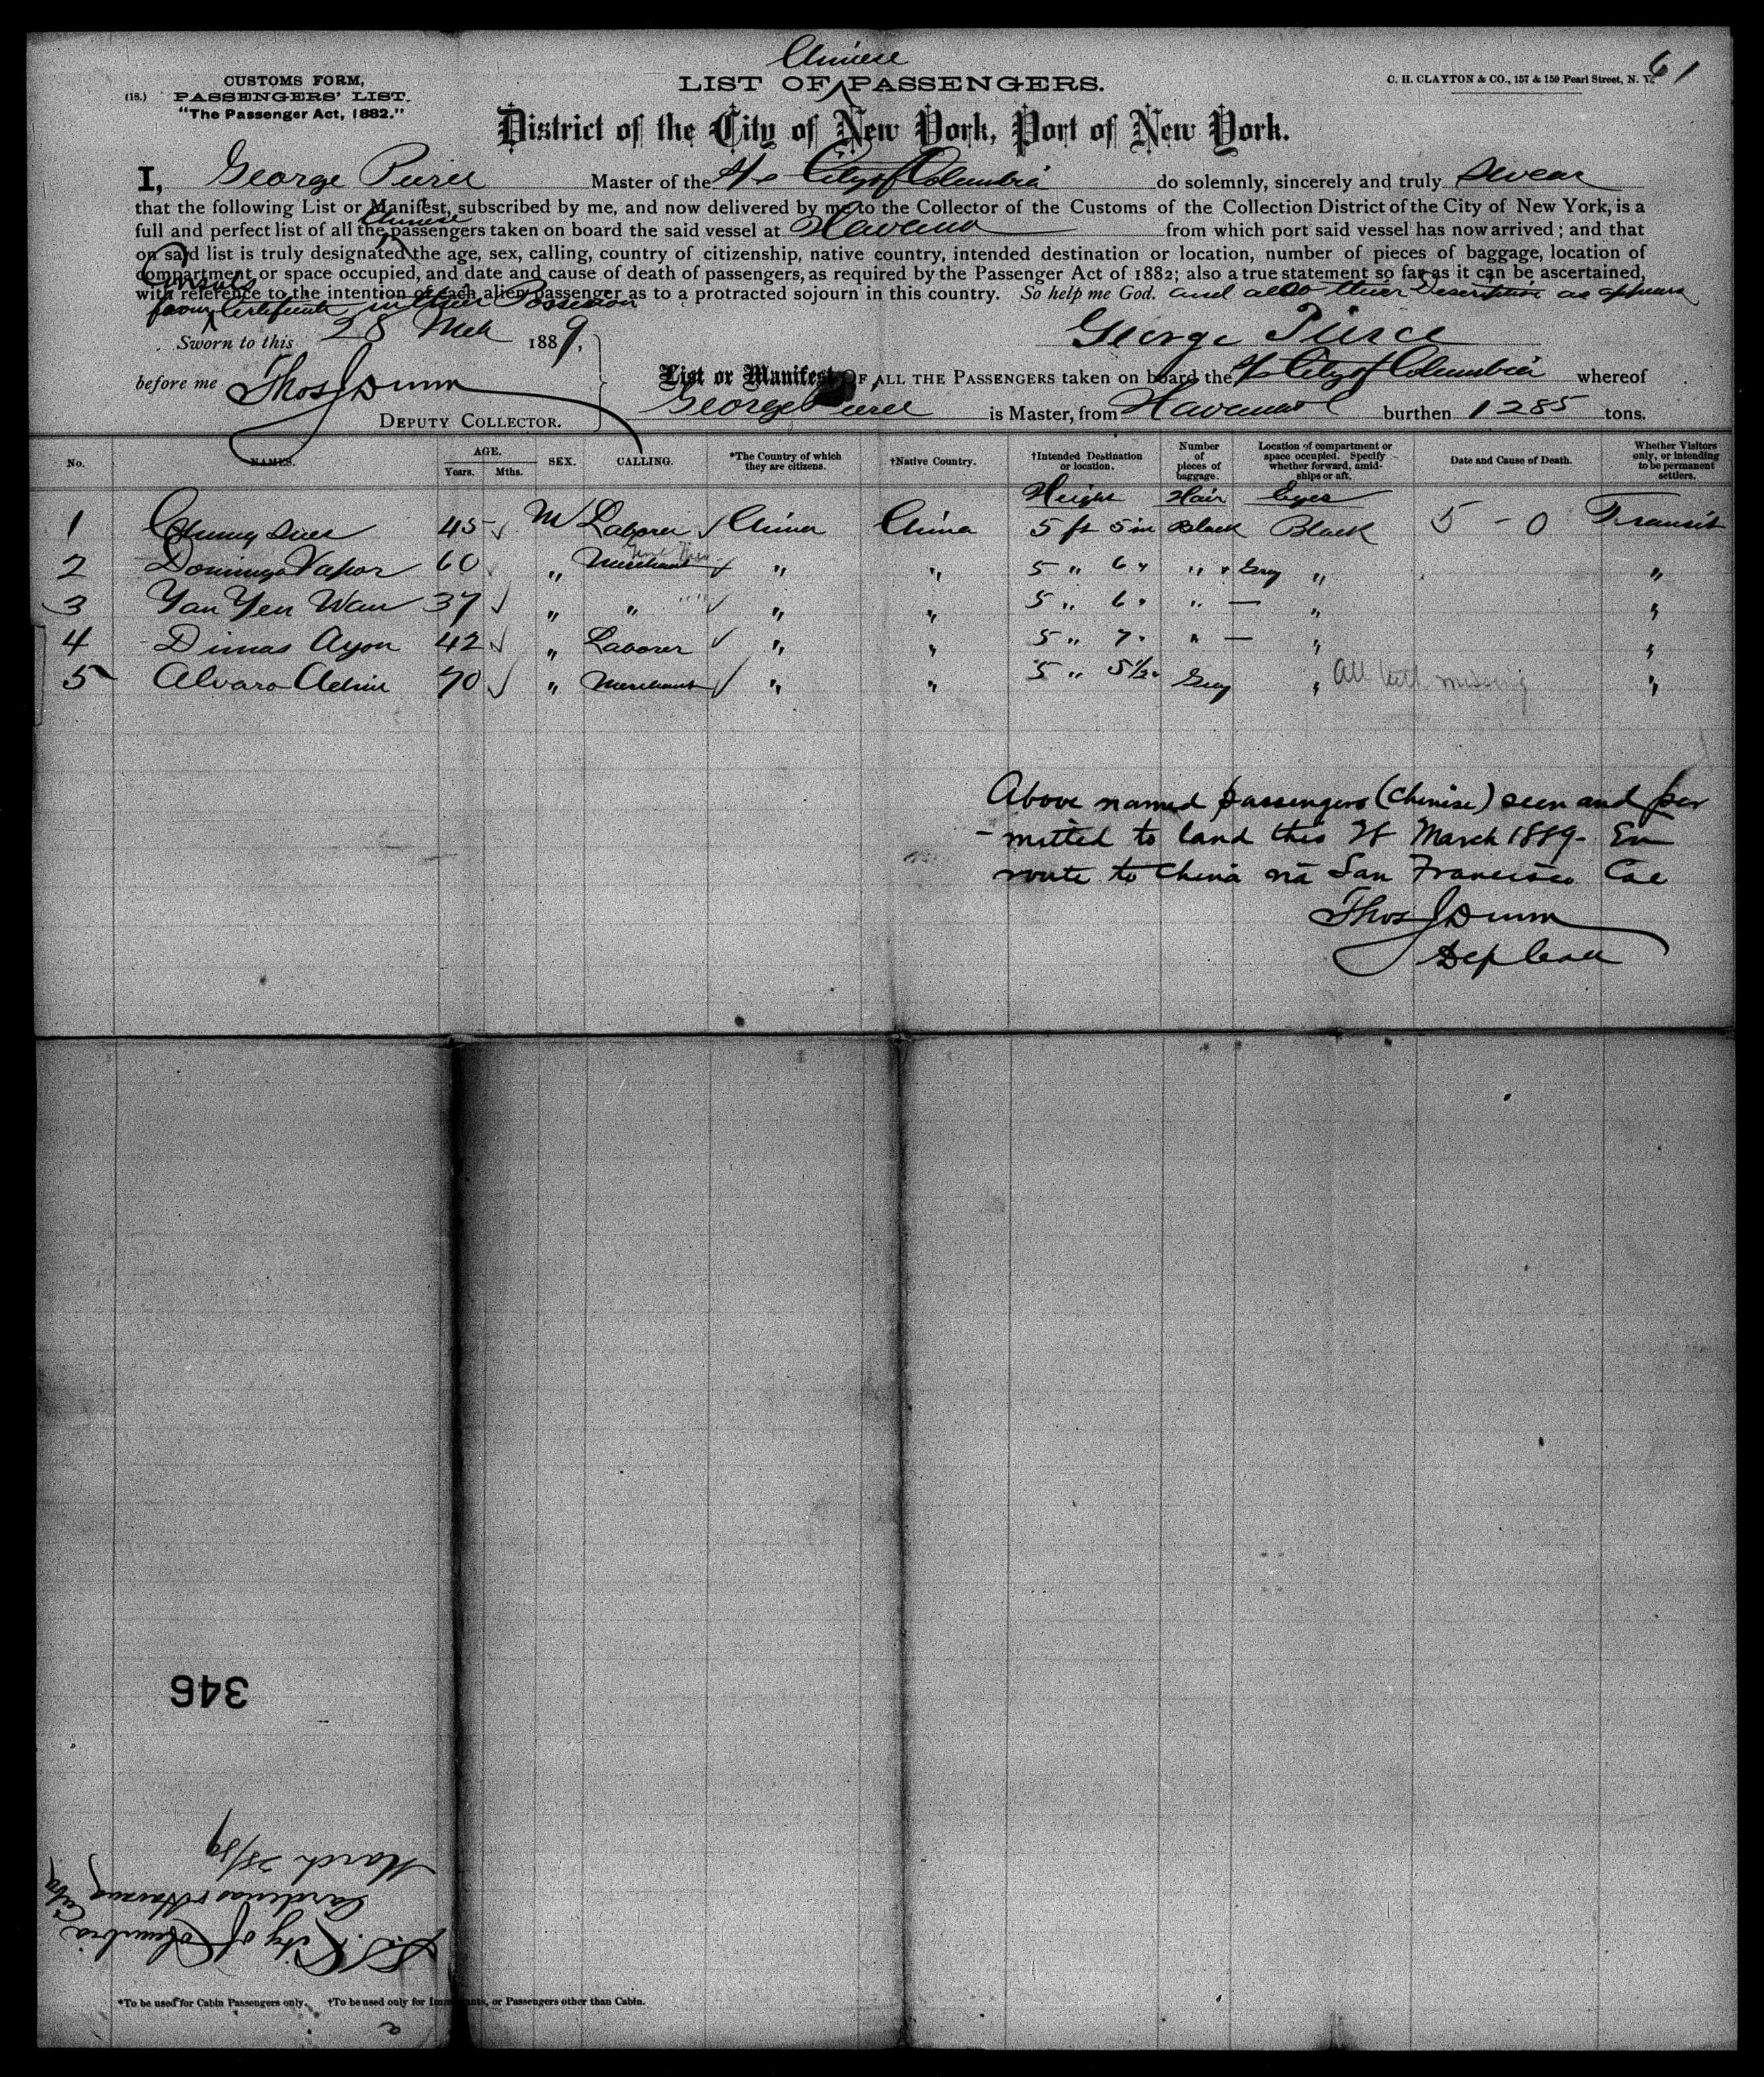 Chinese
61
CUSTOMS FORM,
(18.) PASSENGERS' LIST.
"The Passenger Act, 1882."
LIST OF PASSENGERS.
C. H. CLAYTON & CO., 157 & 159 Pearl Street, N. Y.
District of the City of New York, Port of New York.
I, George Pierce Master of the S/s City of Columbia do solemnly, sincerely and truly swear
that the following List or Manifest, subscribed by me, and now delivered by me to the Collector of the Customs of the Collection District of the City of New York, is a
Chinese
full and perfect list of all the passengers taken on board the said vessel at Havana from which port said vessel has now arrived; and that
on said list is truly designated the age, sex, calling, country of citizenship, native country, intended destination or location, number of pieces of baggage, location of
compartment or space occupied, and date and cause of death of passengers, as required by the Passenger Act of 1882; also a true statement so far as it can be ascertained,
with reference to the intention of each alien passenger as to a protracted sojourn in this country. So help me God. and also their Description as appears
from Consuls Certificate in their Possession
Sworn to this 28 Mch 1889,
George Pierce
before me Thos J Dunn
DEPUTY COLLECTOR.
List or Manifest OF ALL THE PASSENGERS taken on board the S/s City of Columbia whereof
George Pierce is Master, from Havana burthen 1285 tons.
No. NAMES. AGE. Years. Mths. SEX. CALLING. *The Country of which they are citizens. †Native Country. †Intended Destination or location. Number of pieces of baggage. Location of compartment or space occupied. Specify whether forward, amidships or aft. Date and Cause of Death. Whether Visitors only, or intending to be permanent settlers.
Height Hair Eyes
1 45 M Laborer China China 5 ft 5 in Black Black 5 - 0 Transit
2 Domingo 60 " Merchant " " 5 " 6 " " & Grey " "
3 Yan Yen Wan 37 " " " " 5 " 6 " " — " "
4 Dimas Ayon 42 " Laborer " " 5 " 7 " " — " "
5 Alvaro 70 " Merchant " " 5 " 5 1/2 " Grey " All teeth missing "
Above named passengers (Chinese) seen and per
-mitted to land this 28 March 1889- En
route to China via San Francisco Cal
Thos J Dunn
Dep Coll
346
S.S. City of Columbia
Cardenas & Havana Cuba
March 28/89
*To be used for Cabin Passengers only. †To be used only for Immigrants, or Passengers other than Cabin.